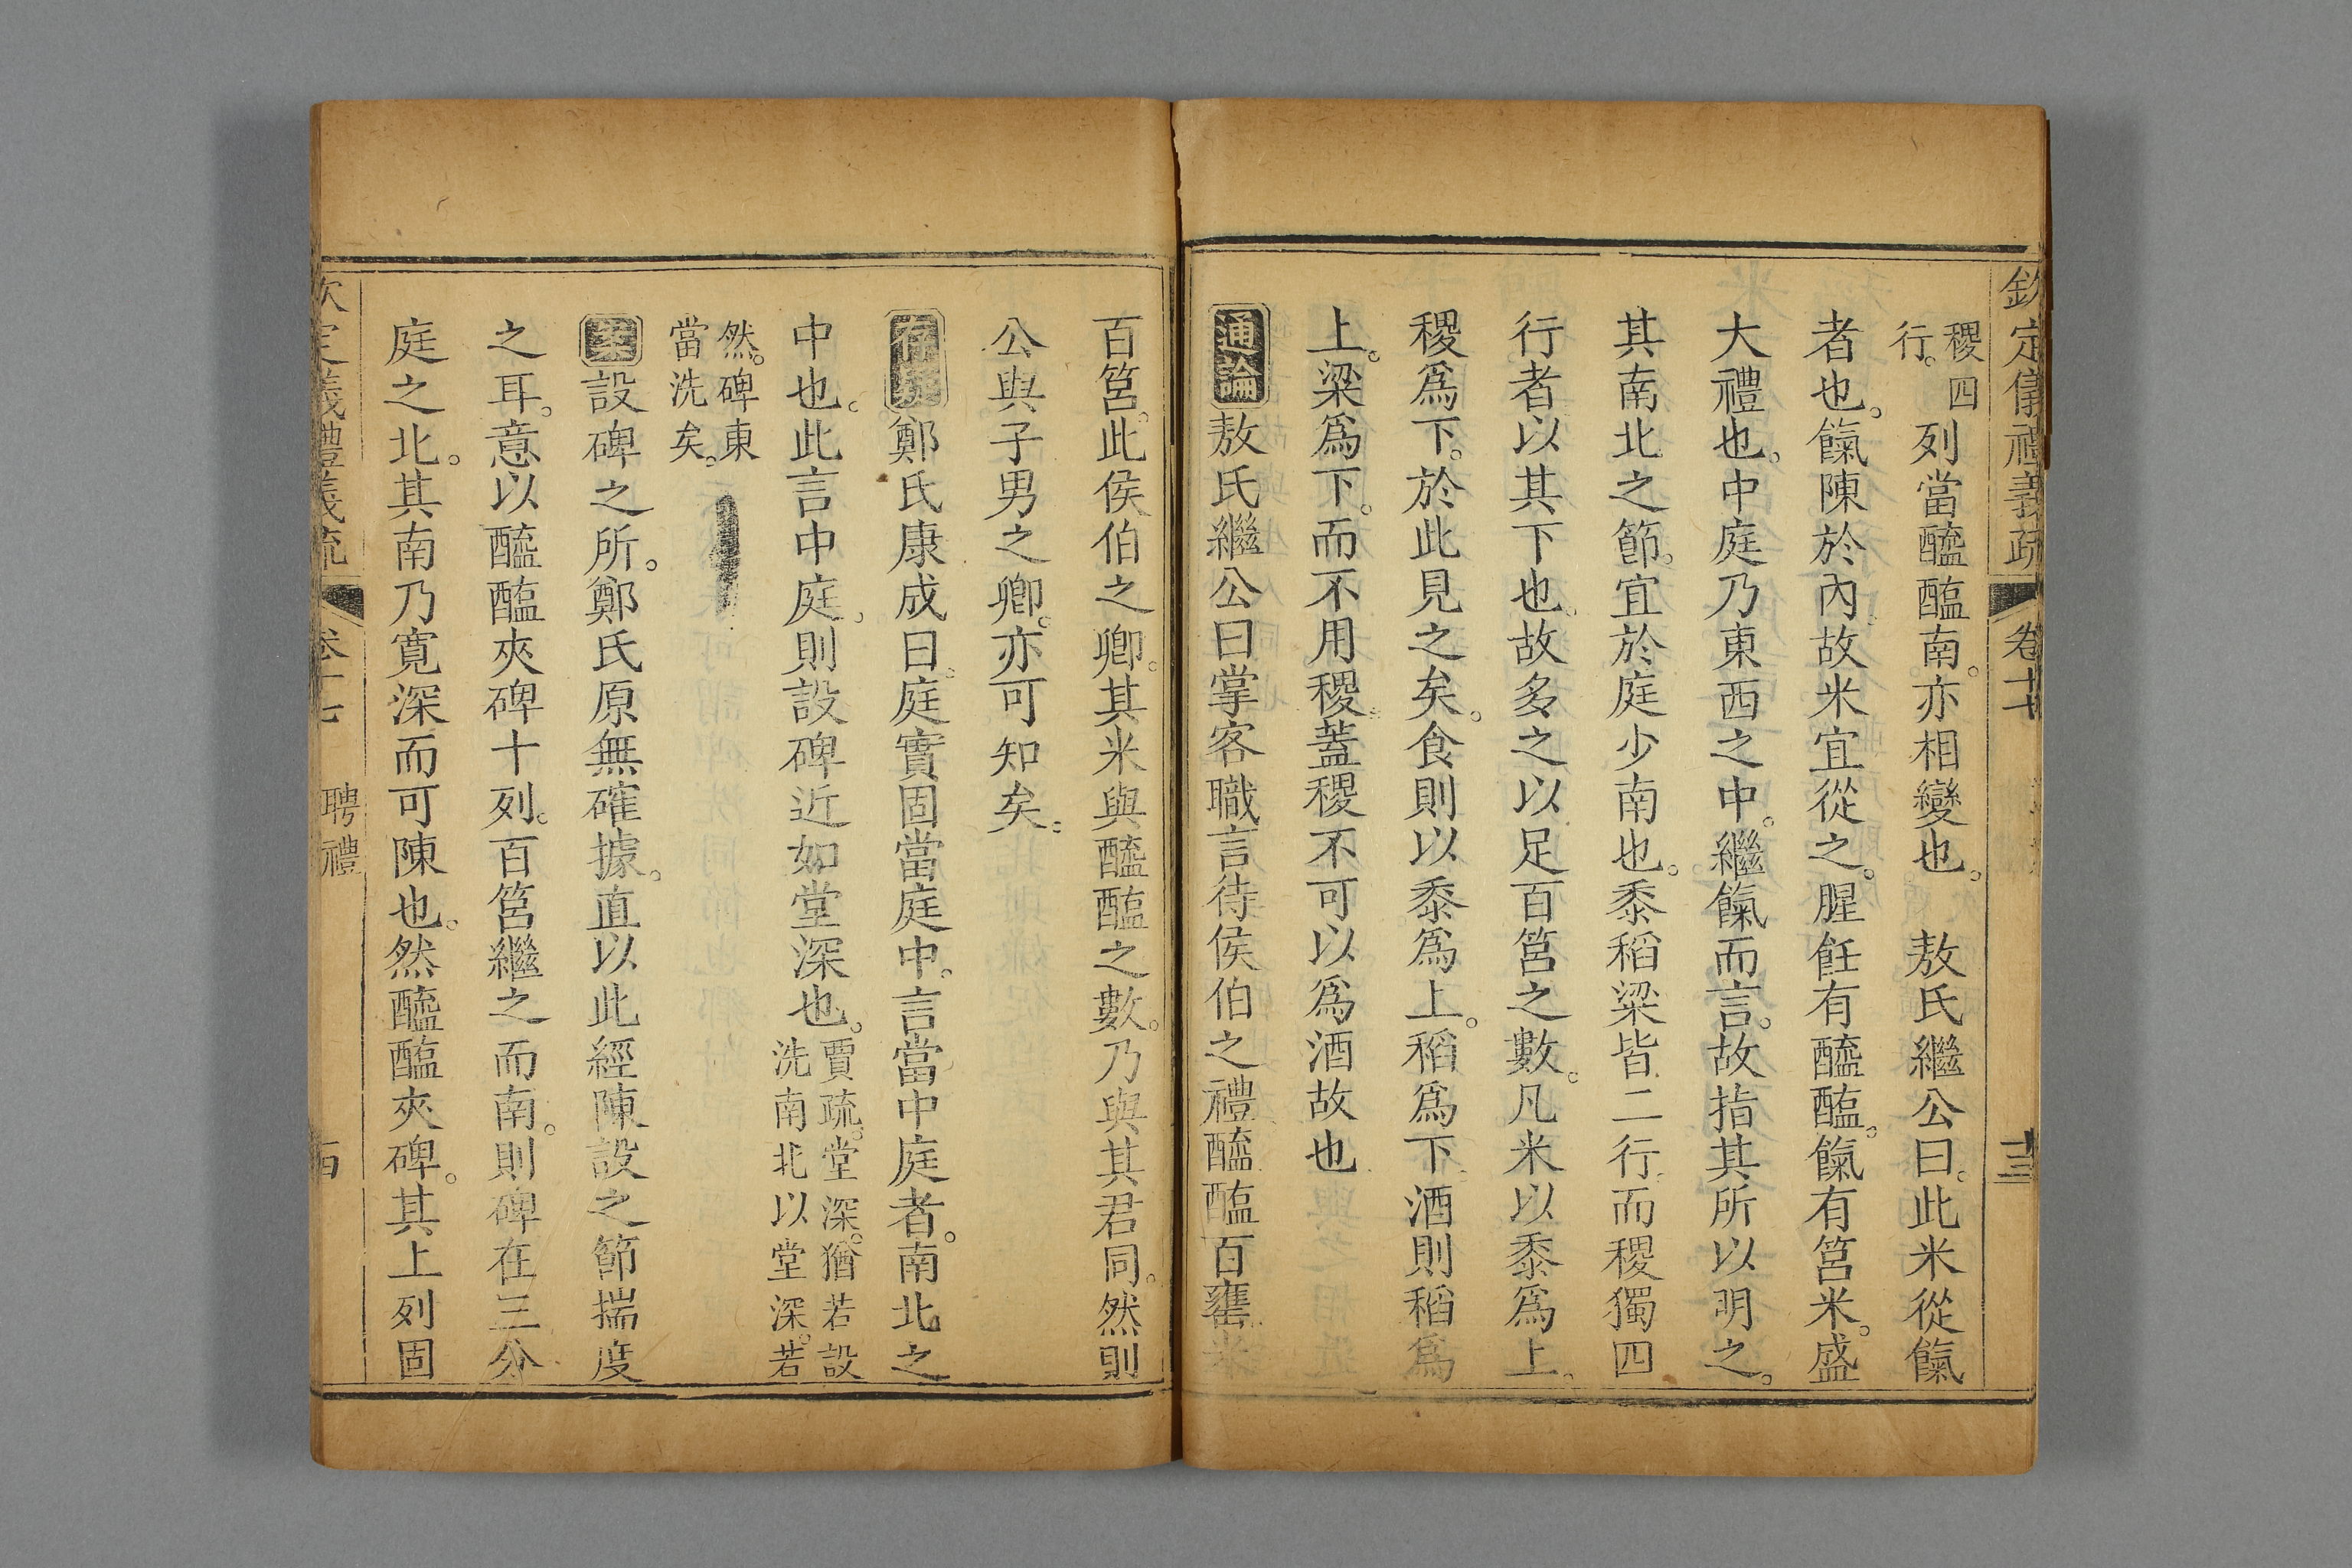 欽定儀禮義疏 卷十七 十三
稷四
行。
列當醯醢南。亦相變也。 敖氏繼公曰。此米從餼
者也。餼陳於內。故米宜從之。腥飪有醯醢。餼有筥米。盛
大禮也。中庭乃東西之中。繼餼而言。故指其所以明之。
其南北之節。宜於庭少南也。黍稻粱皆二行。而稷獨四
行者。以其下也。故多之以足百筥之數。凡米以黍爲上。
稷爲下。於此見之矣。食則以黍爲上。稻爲下。酒則稻爲
上。粱爲下。而不用稷。蓋稷不可以爲酒故也
通論敖氏繼公曰掌客職言待侯伯之禮醯醢百罋米
百筥。此侯伯之卿。其米與醯醢之數。乃與其君同。然則
公與子男之卿。亦可知矣。
存疑鄭氏康成曰。庭實固當庭中。言當中庭者。南北之
中也。此言中庭。則設碑近如堂深也。
賈疏。堂深。猶若設
洗南北以堂深。若
然。碑東
當洗矣。
案設碑之所。鄭氏原無確據。直以此經陳設之節揣度
之耳。意以醯醢夾碑十列。百筥繼之而南。則碑在三分
庭之北。其南乃寬深而可陳也。然醯醢夾碑。其上列固
欽定義禮義疏 卷十七 聘禮